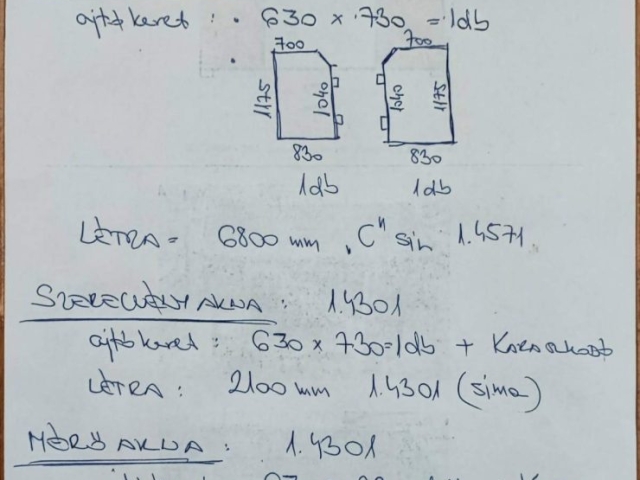 ajtókeret : • 630 x 730 = 1db
•
700 700
1175 1040 1040 1175
830 830
1db 1db
LÉTRA = 6800 mm . C" sín 1.4571
SZERELVÉNYAKNA : 1.4301
ajtókeret : 630 x 730=1db +
LÉTRA : 2100 mm 1.4301 (sima)
MÉRŐ AKNA : 1.4301